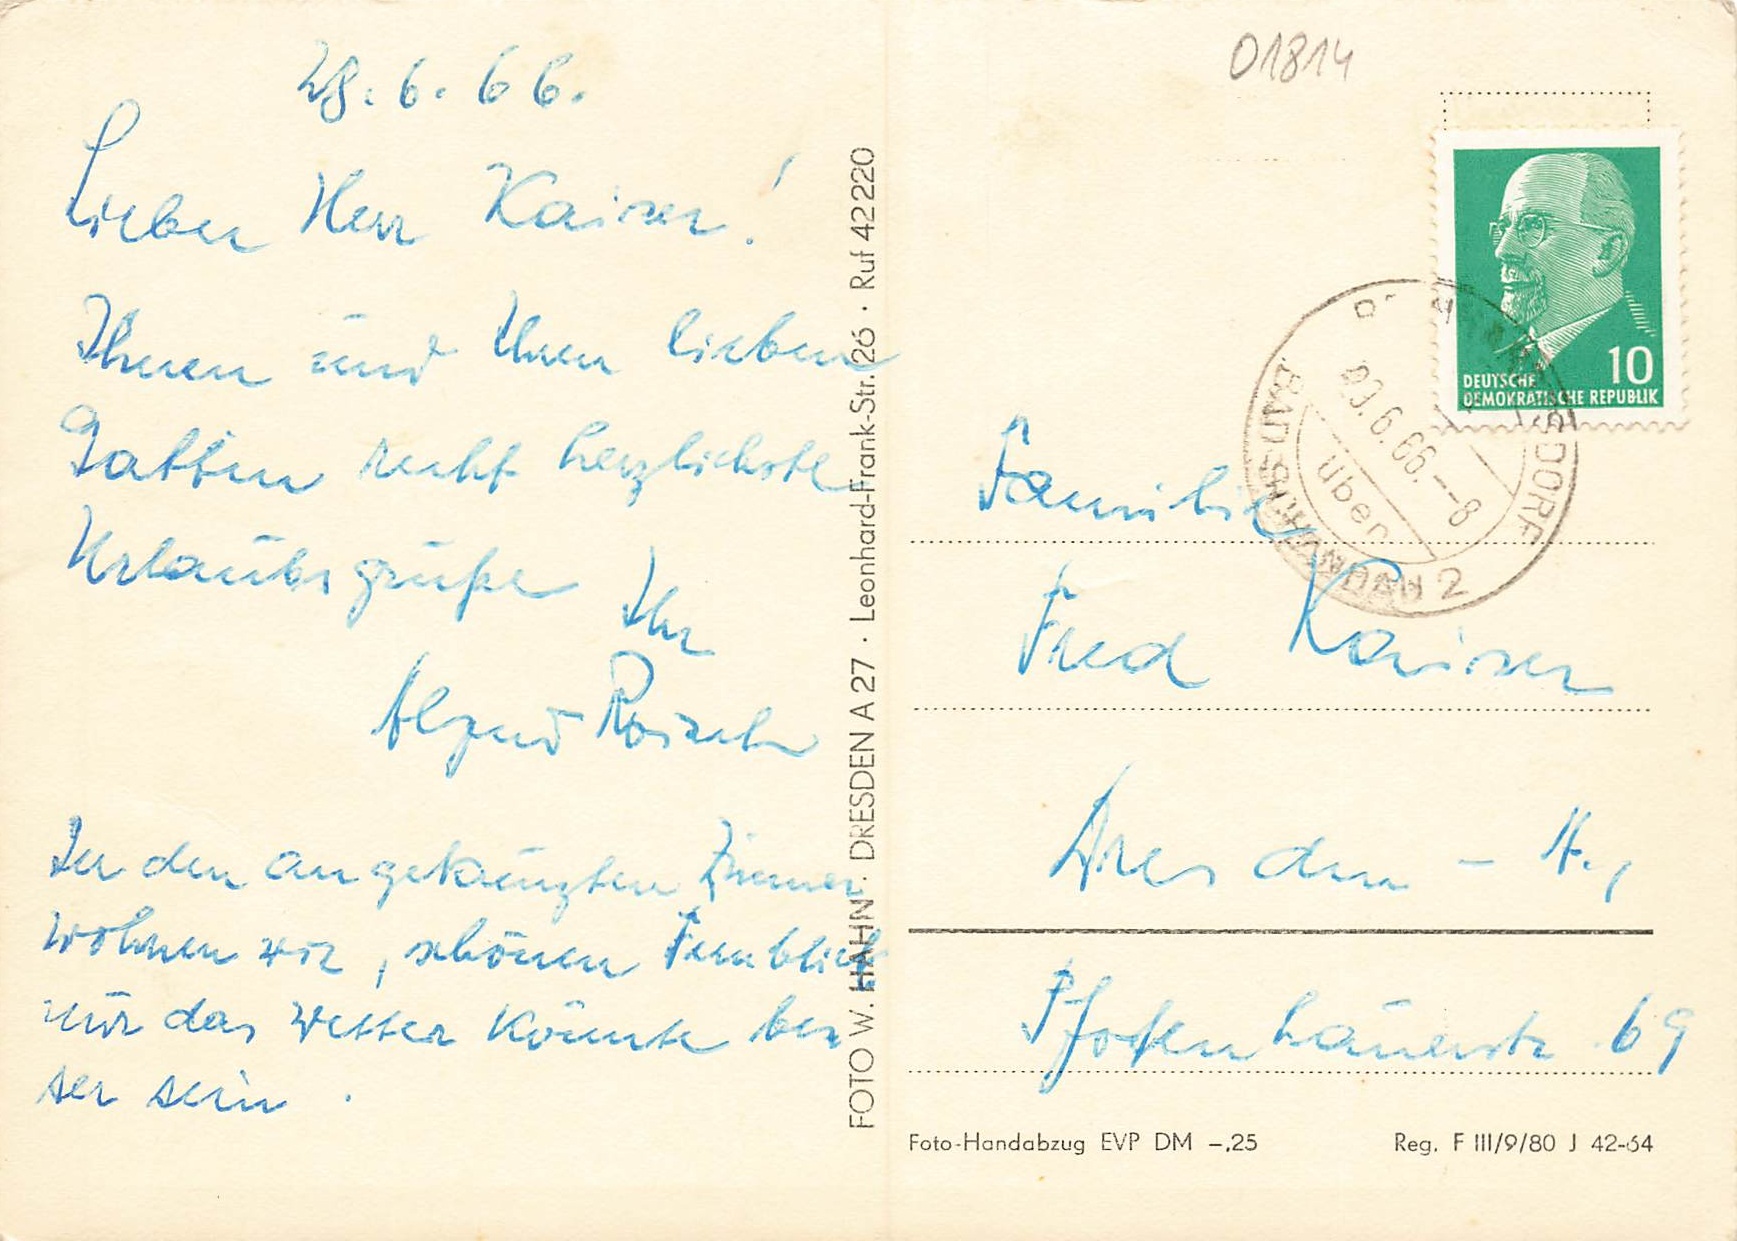 28.6.66.
Lieber Herr Kaiser!
Ihnen und Ihren lieben
Gattin recht herzlichste
Urlaubsgrüße Ihr
In den angekreuzten Zimmer
wohnen wir, schönen Fernblick
nur das Wetter könnte bes
ser sein.
FOTO W. HAHN · DRESDEN A 27 · Leonhard-Frank-Str. 26 · Ruf 42220
01814
10
DEUTSCHE
DEMOKRATISCHE REPUBLIK
.6.66.--8
über
BAD SCHANDAU 2
Familie
Fred Kaiser
Dresden - A.,
Pfotenhauerstr 69
Foto-Handabzug EVP DM -,25
Reg. F III/9/80 J 42-64